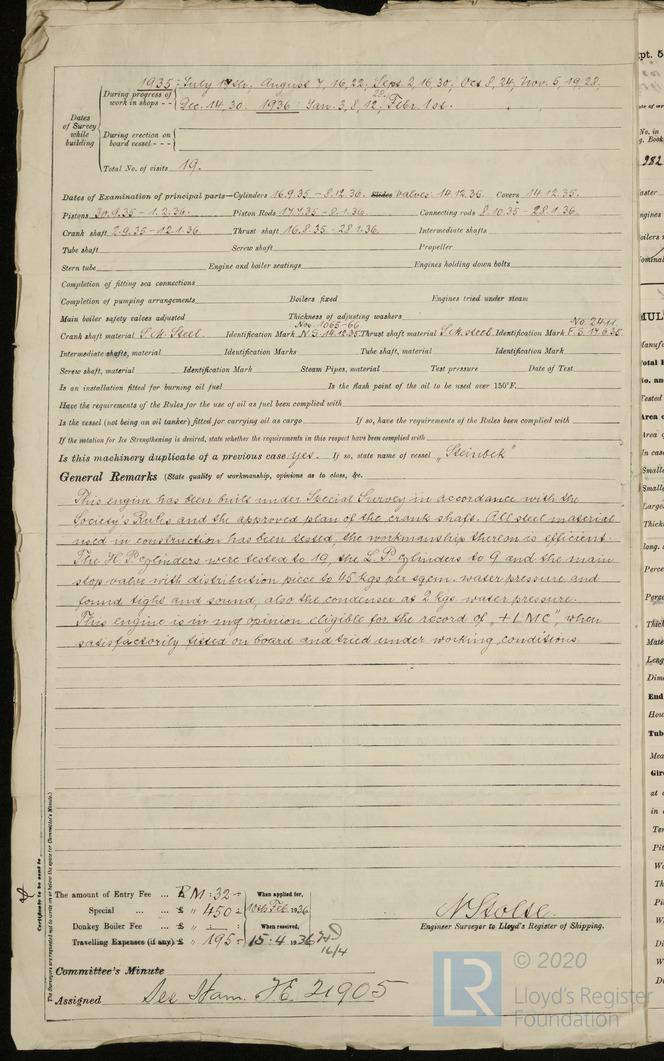 1935: July 17th, August 7, 16, 22, Sept. 2, 16, 30, Oct 8, 24, Nov. 5, 19, 28,
During progress of work in shops - -
Dec. 14, 30. 1936: Jan. 3, 8, 12, 28. Febr 1st.
Dates of Survey while building
During erection on board vessel - - -
Total No. of visits 19.
Dates of Examination of principal parts—Cylinders 16.9.35 - 8.12.36. Slides Valves: 14.12.35. Covers 14.12.35.
Pistons 30.9.35 - 1.2.36. Piston Rods 17.7.35 - 8.1.36. Connecting rods 8.10.35 - 28.1.36.
Crank shaft 2.9.35 - 12.1.36 Thrust shaft 16.8.35 - 28.1.36 Intermediate shafts
Tube shaft Screw shaft Propeller
Stern tube Engine and boiler seatings Engines holding down bolts
Completion of fitting sea connections
Completion of pumping arrangements Boilers fixed Engines tried under steam
Main boiler safety valves adjusted Thickness of adjusting washers
Nos. 1065-66 No. 2411
Crank shaft material S.M. Steel Identification Mark N.S. 14.12.35 Thrust shaft material S.M. steel Identification Mark F.S. 17.6.35
Intermediate shafts, material Identification Marks Tube shaft, material Identification Mark
Screw shaft, material Identification Mark Steam Pipes, material Test pressure Date of Test
Is an installation fitted for burning oil fuel Is the flash point of the oil to be used over 150°F.
Have the requirements of the Rules for the use of oil as fuel been complied with
Is the vessel (not being an oil tanker) fitted for carrying oil as cargo If so, have the requirements of the Rules been complied with
If the notation for Ice Strengthening is desired, state whether the requirements in this respect have been complied with
Is this machinery duplicate of a previous case yes. If so, state name of vessel „Steinbek"
General Remarks (State quality of workmanship, opinions as to class, &c.
This engine has been built under Special Survey in accordance with the
Society's Rules and the approved plan of the crank shaft. All steel material
used in construction has been tested, the workmanship thereon is efficient.
The H.P. cylinders were tested to 19, the L.P. cylinders to 9 and the main
stop valve with distribution piece to 45 kgs per sqcm. water pressure and
found tight and sound, also the condenser at 2 kgs water pressure.
This engine is in my opinion eligible for the record of „+LMC", when
satisfactorily fitted on board and tried under working conditions.
Certificate to be sent to
The Surveyors are requested not to write on or below the space for Committee's Minute.)
The amount of Entry Fee ... RM: 32- When applied for,
Special ... ... £ " 450- 10th Feb. 1936
Donkey Boiler Fee ... £ " When received,
Travelling Expenses (if any) £ " 195- 15.4.1936
16/4
N Stolse.
Engineer Surveyor to Lloyd's Register of Shipping.
Committee's Minute
Assigned See Ham. F.E. 21905
LR © 2020
Lloyd's Register
Foundation